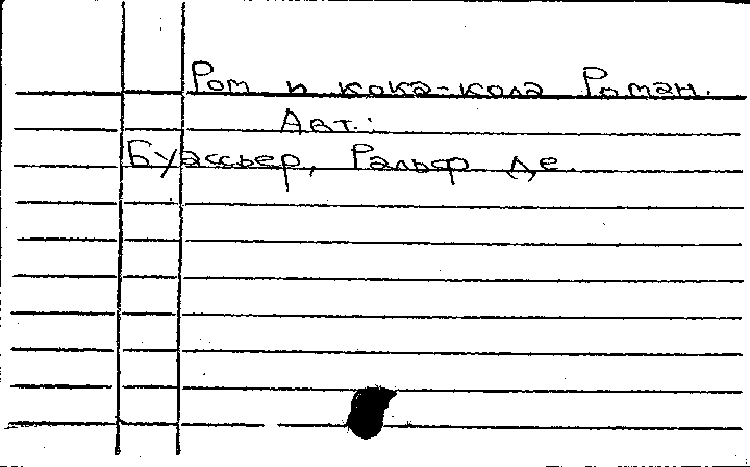 Ром и кока-кола Роман.
Авт.:
Буассьер, Ральф де.